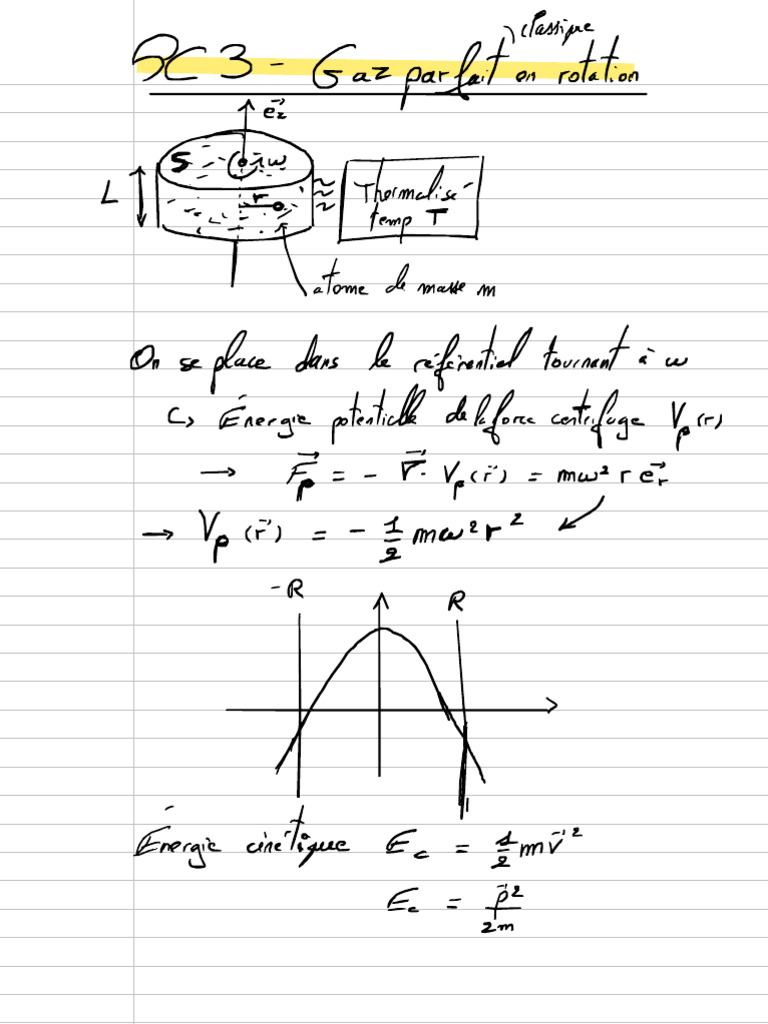 PC3 - Gaz parfait classique en rotation
e⃗z
S ω
L r
Thermalisé
temp T
atome de masse m
On se place dans le référentiel tournant à ω
↳ Énergie potentielle de la force centrifuge Vp(r)
→ F⃗p = - ∇⃗. Vp(r⃗) = mω² r e⃗r
→ Vp(r⃗) = - 1/2 mω²r²
-R R
Énergie cinétique Ec = 1/2 mv⃗²
Ec = p⃗²/2m